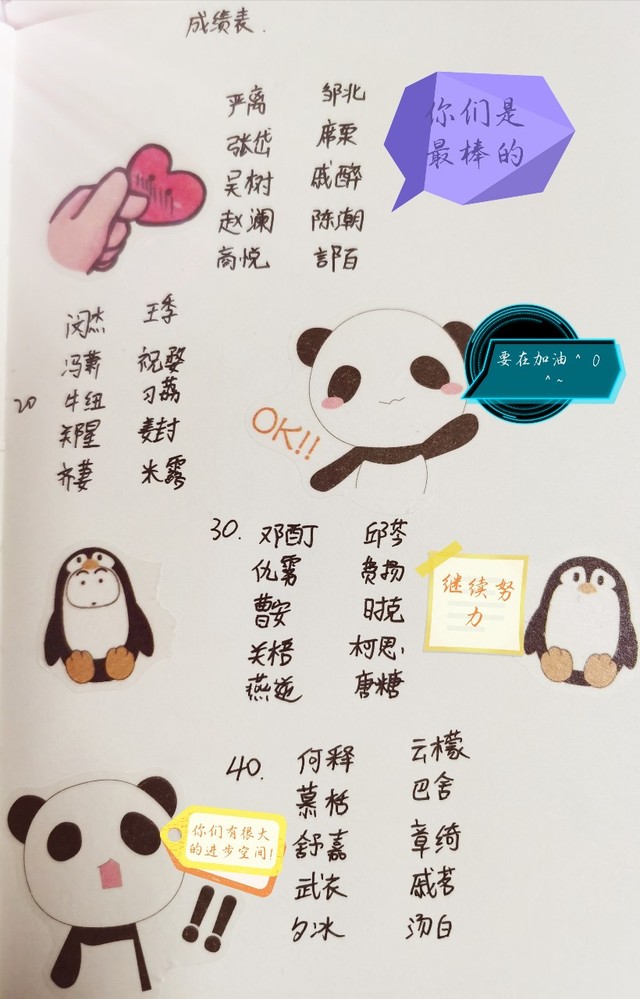 成绩表.
严离 邹北
张岱 席栗
吴树 戚醉
赵澜 陈潮
商悦 訾百
你们是
最棒的
闵杰 王季
冯萧 祝婺
20 牛纽 刁荔
关醒 姜封
齐萋 米露
OK!!
要在加油^0
^~
30. 邓酊 邱芩
仇雾 费扬
曹安 时克
关梧 柯思
燕 唐糖
继续努
力
40. 何释 云檬
慕栝 巴舍
舒嘉 章绮
武衣 戚茗
夕冰 汤白
你们有很大
的进步空间!
!!